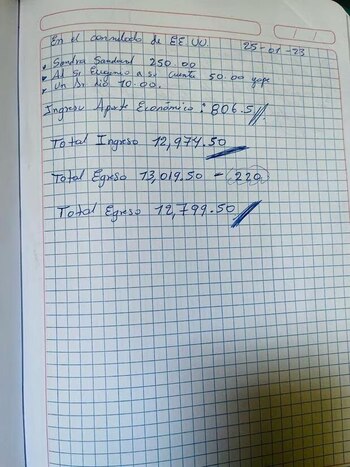 En el consulado de EE UU 25-01-23
• Sandra Sandard 250.00
• Al Sr Eugenio a su cuenta 50.00 yape
• Un Sr dio 10.00.
Ingreso Aporte Económico: 806.5
Total Ingreso 12,974.50
Total Egreso 13,019.50 - 220
Total Egreso 12,799.50